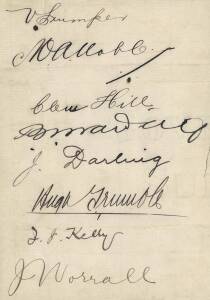 V Trumper
M A Noble.
Clem Hill
J. Darling
Hugh Trumble
J. J. Kelly
J Worrall